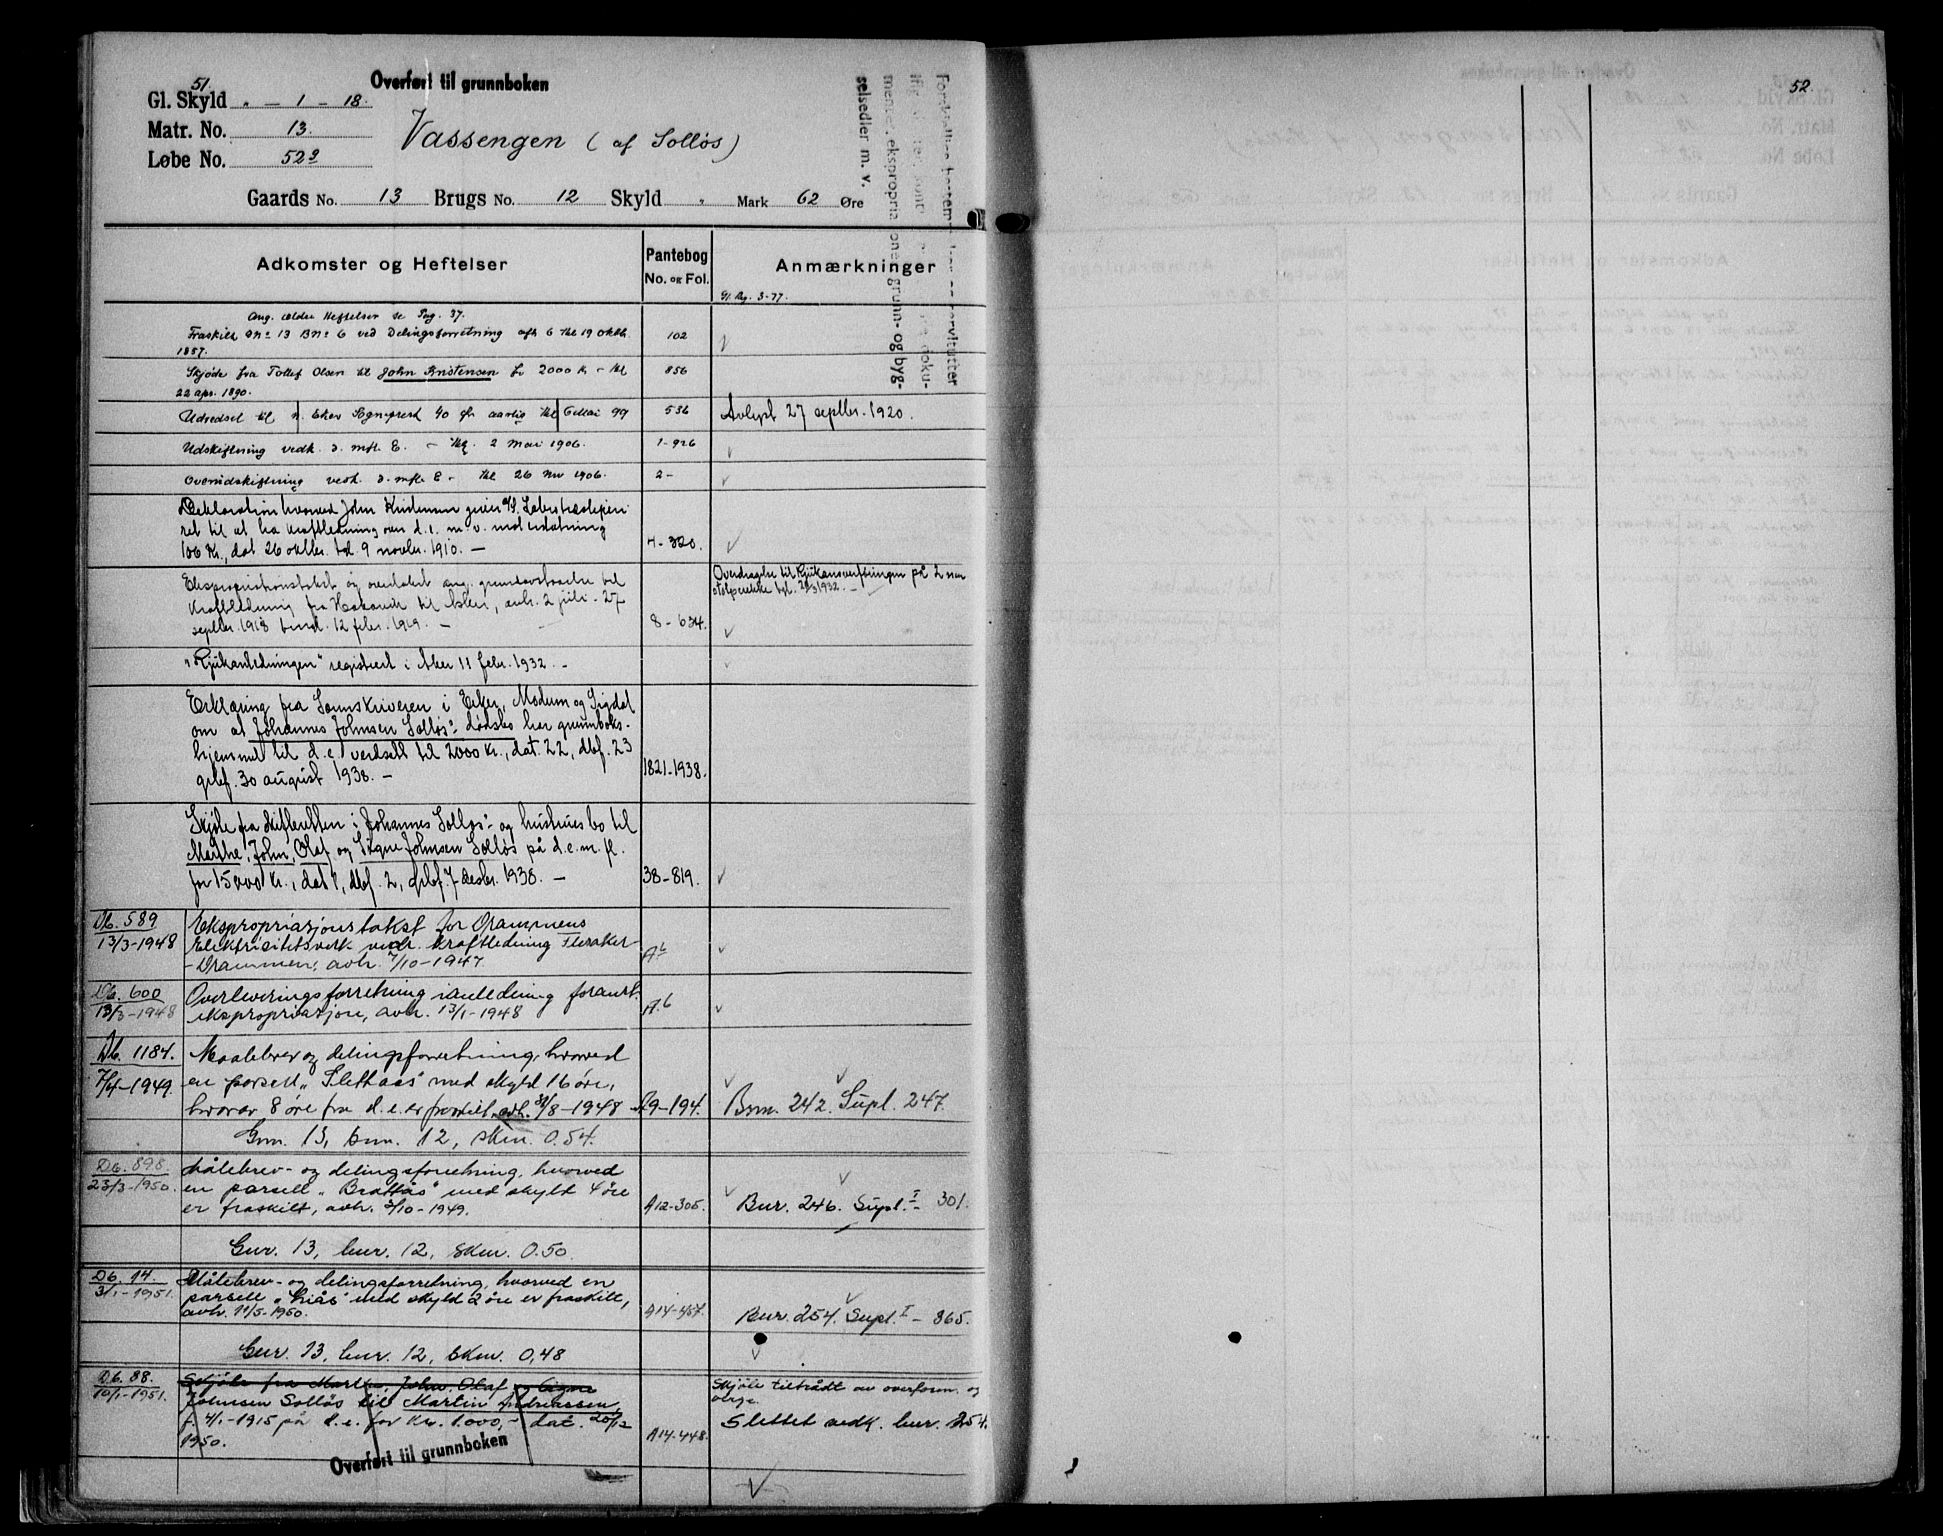 51.
Overført til grunnboken
Gl. Skyld " - 1 - 18.
Matr. No. 13.
Vassengen (af Solløs)
Løbe No. 52 a
Gaards No. 13 Brugs No. 12 Skyld " Mark 62 Øre
Adkomster og Heftelser
Pantebog
No. og Fol.
Anmærkninger
Gl. Rg. 3-77.
Ang. ældre Heftelser se Pag. 37.
Fraskilt Gno 13 Bno 6 ved Delingsforretning afh 6 thl 19 oktb. 102
1857.
Skjøde fra Tollef Olsen til John Kristensen for 2000 Kr - thl 856
22 apr. 1890.
Udredsel til n. Eker Sognepræst 40 øre aarlig thl 99 536 Avlyst 27 septbr. 1920.
Udskiftning vedk. d. mfl. E. - thl 2 Mai 1906. 1-926
Overudskiftning vedk. d. mfl E - thl 26 Nov 1906. 2-
Deklaration hvorved John Kristensen giver A/S Labro Træsliperi
ret til at ha kraftledning over d. e. m. v. mot erstatning
106 Kr., dat 26 oktbr. tgl. 9 novbr. 1910. - 4-320.
Ekspropriationstakst og overtakst ang. grundavstaaelse til
Kraftledning fra Hakavik til Asker, avh. 2 juli - 27
septbr. 1918 tinl. 12 febr. 1919. - 8-634.
Overdragelse til Rjukanoverføringen på 2 nye
stolperekke tgl. 1932. -
"Rjukanledningen" registrert i Aker 11 febr. 1932. -
Erklæring fra Sorenskriveren i Eiker, Modum og Sigdal
om at Johannes Johnsen Solløs' dødsbo har grunnboks-
hjemmel til d. e. verdsatt til 2000 kr., dat. 22, dbf. 23
grbf. 30 august 1938. - 1821-1938.
Skjøte fra skifteretten i Johannes Solløs' og hustrues bo til
Marthe, John, Olaf og Signe Johnsen Solløs på d. e. m. fl.
for 15000 kr., dat 1, dbf. 2, grbf. 7 desbr. 1938. - 38-819.
Db. 589
13/3-1948
Ekspropriasjonstakst for Drammens
Elektrisitetsverk vedr. kraftledning Flesaker-
-Drammen, avh. 7/10-1947. A6
Db. 600
13/3-1948
Overleveringsforretning i anledning foranst.
ekspropriasjon, avh. 13/1-1948 A.6
Db. 1184.
7/4-1949.
Maalebrev og delingsforretning, hvorved
en parsell "Slethaas" med skyld 16 øre,
hvorav 8 øre fra d. e. er fraskilt, avh. 31/8-1948 A9-194. Bnr. 242. Supl. 247.
Gnr. 13, bnr. 12, skm. 0.54.
Db. 898.
23/3-1950.
Målebrev- og delingsforretning, hvorved
en parsell "Brattås" med skyld 4 øre
er fraskilt, avh. 3/10-1949. A12-305. Bnr. 246. Supl. I - 301.
Gnr. 13, bnr. 12, skm. 0.50.
Db. 14.
3/1-1951.
Målebrev- og delingsforretning, hvorved en
parsell "Liås" med skyld 2 øre er fraskilt,
avh. 11/5-1950. A14-457. Bnr. 254. Supl. I - 365.
Gnr. 13, bnr. 12, skm. 0,48
Db. 88.
10/1-1951.
Skjøte fra Marthe, John, Olaf og Signe
Johnsen Solløs til Martin Andreassen,
f. 4/1-1915 på d. e. for kr. 1.000,- dat. 20/12
1950. A14-448.
Skjøte tiltrådt av overform. og
verge.
Slettet vedk. bnr. 254.
Overført til grunnboken
52.